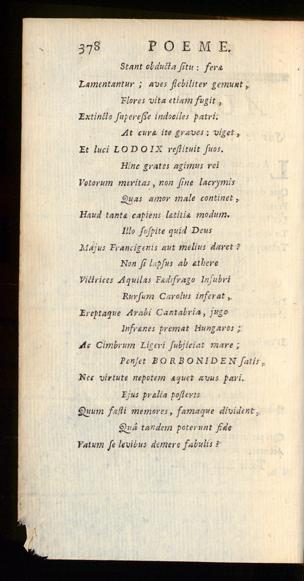 378 POEME.
Stant obducta situ: feræ
Lamentantur; aves flebiliter gemunt,
Flores vita etiam fugit,
Extincto superesse indociles patri.
At curæ ite graves: viget,
Et luci LODOIX restituit suos.
Hinc grates agimus rei
Votorum meritas, non sine lacrymis
Quas amor male continet,
Haud tantæ capiens lætitiæ modum.
Illo sospite quid Deus
Május Francigenis aut melius daret?
Non si lapsus ab æthere
Victrices Aquilas Fœdifrago Insubri
Rursum Carolus inferat,
Ereptaque Arabi Cantabria, jugo
Infrænes premat Hungaros;
Ac Cimbrum Ligeri subjiciat mare;
Penset BORBONIDEN satis,
Nec virtute nepotem æquet avus pari.
Ejus prælia posteris
Quum fasti memores, famaque divident,
Quâ tandem poterunt fide
Vatum se levibus demere fabulis?